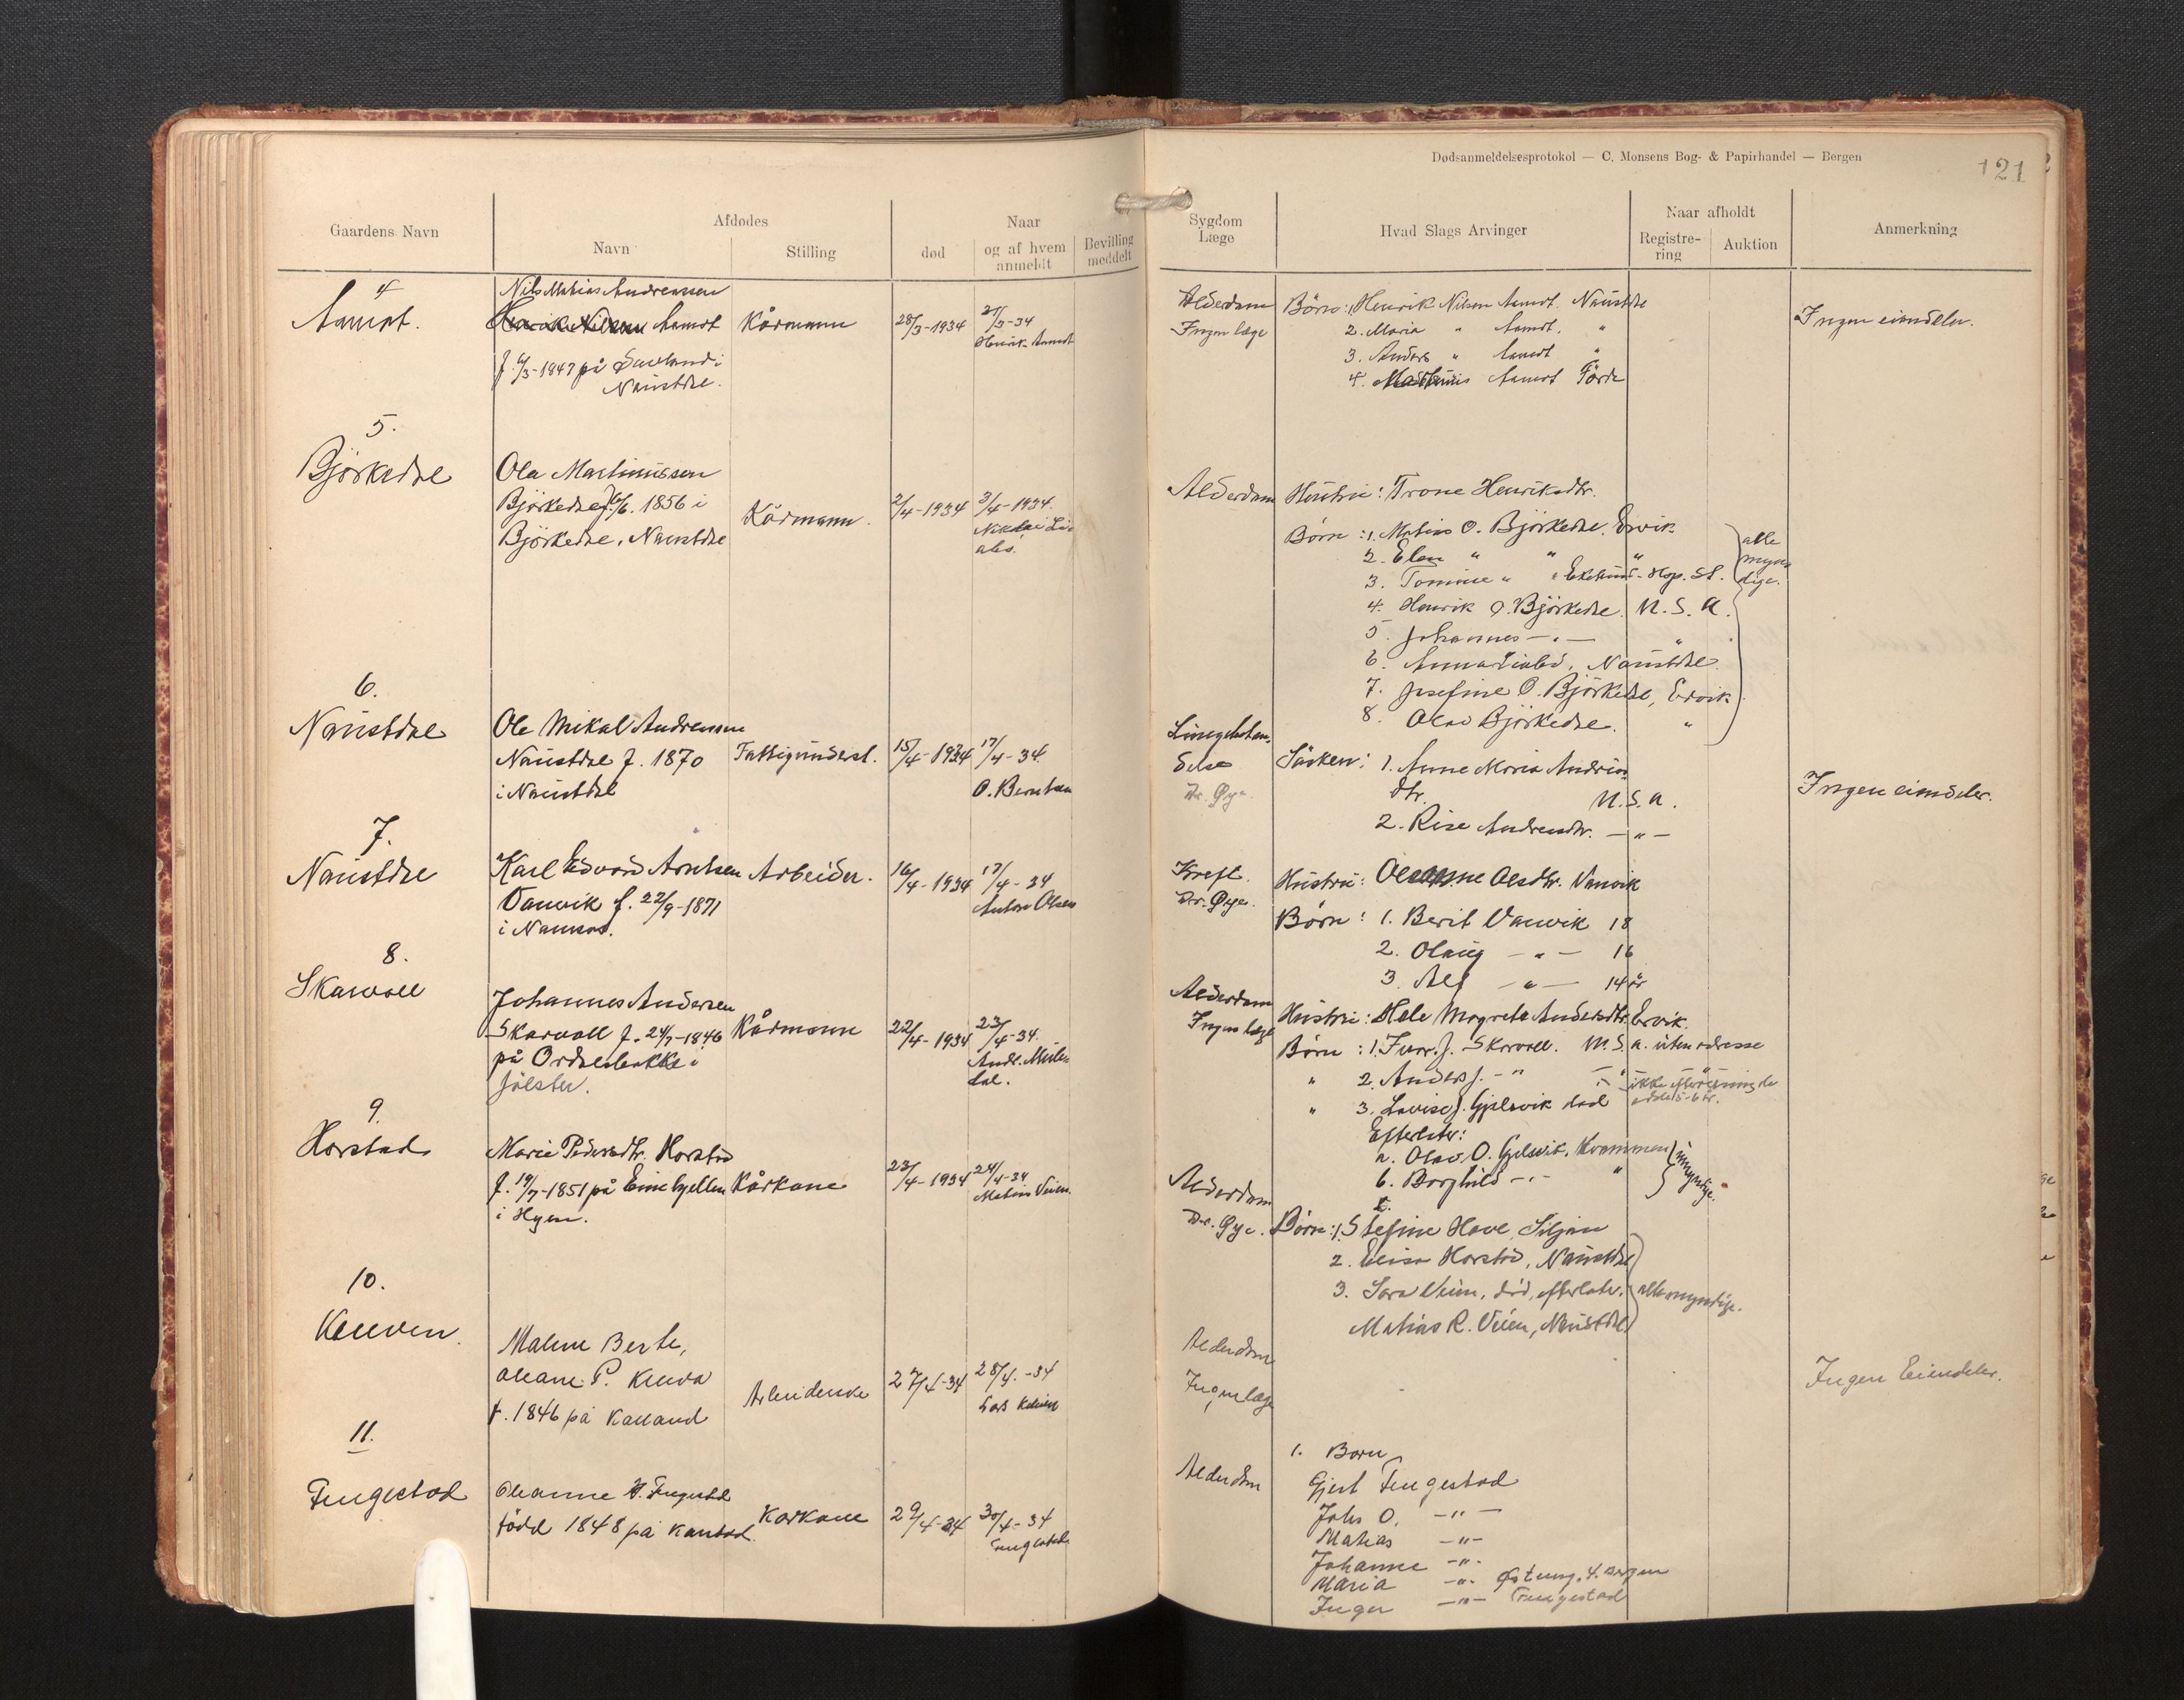 Dødsanmeldelsesprotokol — C. Monsens Bog- & Papirhandel — Bergen
121
Gaardens Navn
Afdødes
Navn
Stilling
Naar
død
og af hvem anmeldt
Bevilling meddelt
Sygdom
Læge
Hvad Slags Arvinger
Naar afholdt
Registre-
ring
Auktion
Anmerkning
4
Aamot.
Nils Matias Andreassen
Aamot
på
i
Naustdal.
Kårmann
28/3-1934
27/3-34
Henrik Aamot
Alderdom
Ingen læge
Börn: 1. Henrik Nilsen Aamot, Naustdal
2. Maria " Aamot, "
3. Anders " Aamot "
4. Aamot Förde
Ingen eiendeler.
5.
Björkedal
Ola Martinussen
Björkedal f. 6/6. 1856 i
Björkedal, Naustdal
Kårmann.
2/4-1934
3/4-1934.
Alderdom
Hustru: Trone Henriksdtr.
Börn: 1. Matias O. Björkedal, Ervik
2. Elen " " "
3. Tomine "
4. Henrik O. Björkedal U.S.A.
5. Johannes — " — "
6. Anna Naustdal
7. Josefine O. Björkedal, Ervik
8. Olav Björkedal. "
alle
myn
dige.
6.
Naustdal
Ole Mikal Andreassen
Naustdal f. 1870
i Naustdal
Fattigunderst.
15/4-1934
17/4-34.
O. Berntsen
Dr. Øye.
Søsken: 1. Anne Maria Andrias
dtr. U.S.A.
2. Rise Andreasdtr. — " —
Ingen eiendeler.
7.
Naustdal
Karl Edvard Arntsen
Vanvik f. 22/9-1871
i Namsos.
Arbeider.
16/4-1934
17/4-34
Anton Olsen
Kreft.
Dr. Øye.
Hustru: Olsdtr. Vanvik
Børn: 1. Berit Vanvik 18
2. Olaug — " — 16
3. Alf — " — 14 år
8.
Skarvoll
Johannes Andersen
Skarvoll f. 24/7-1846
på i
Jölster.
Kårmann
22/4-1934
23/4-34.
Alderdom
Ingen læge
Hustru: Hele Margreta Andersdtr. Ervik.
Børn: 1. Ivar J. Skarvoll. U.S.A. uten adresse
" 2. Anders J. — "
" 3. Lovise J. Gjelsvik död
Efterlater:
a. Olav O. Gjelsvik, Kvammen
b. Borghild — " — "
umyndige.
9.
Horstad
Marie Pedersdtr. Horstad
f. 19/7-1851 på Eimhjellen
i Hyen.
Kårkone
23/4-1934
24/4-34
Matias Veien.
Alderdom
Dr. Øye.
Børn: 1. Stefine Hove, Siljan
2. Elisa Horstad, Naustdal
3. Sara Veien, död, efterlater
Matias R. Veien, Naustdal
alle myndige.
10.
Kleiven.
Malene Berte,
Oleane P. Kleiva
f. 1846 på Kalland
27/4-34
28/4.-34
Lars Kleiven
Alderdom
Ingen læge
Ingen Eiendeler.
11.
Fengestad
Oleanne Fengestad
född 1848 på
Karkone
29/4-34
30/4-34
Fengestad
Alderdom
1. Born
Gjert Fengestad
Johs O. — " —
Matias — " —
Johanne — " —
Maria — " —
Inger — " — Fengestad